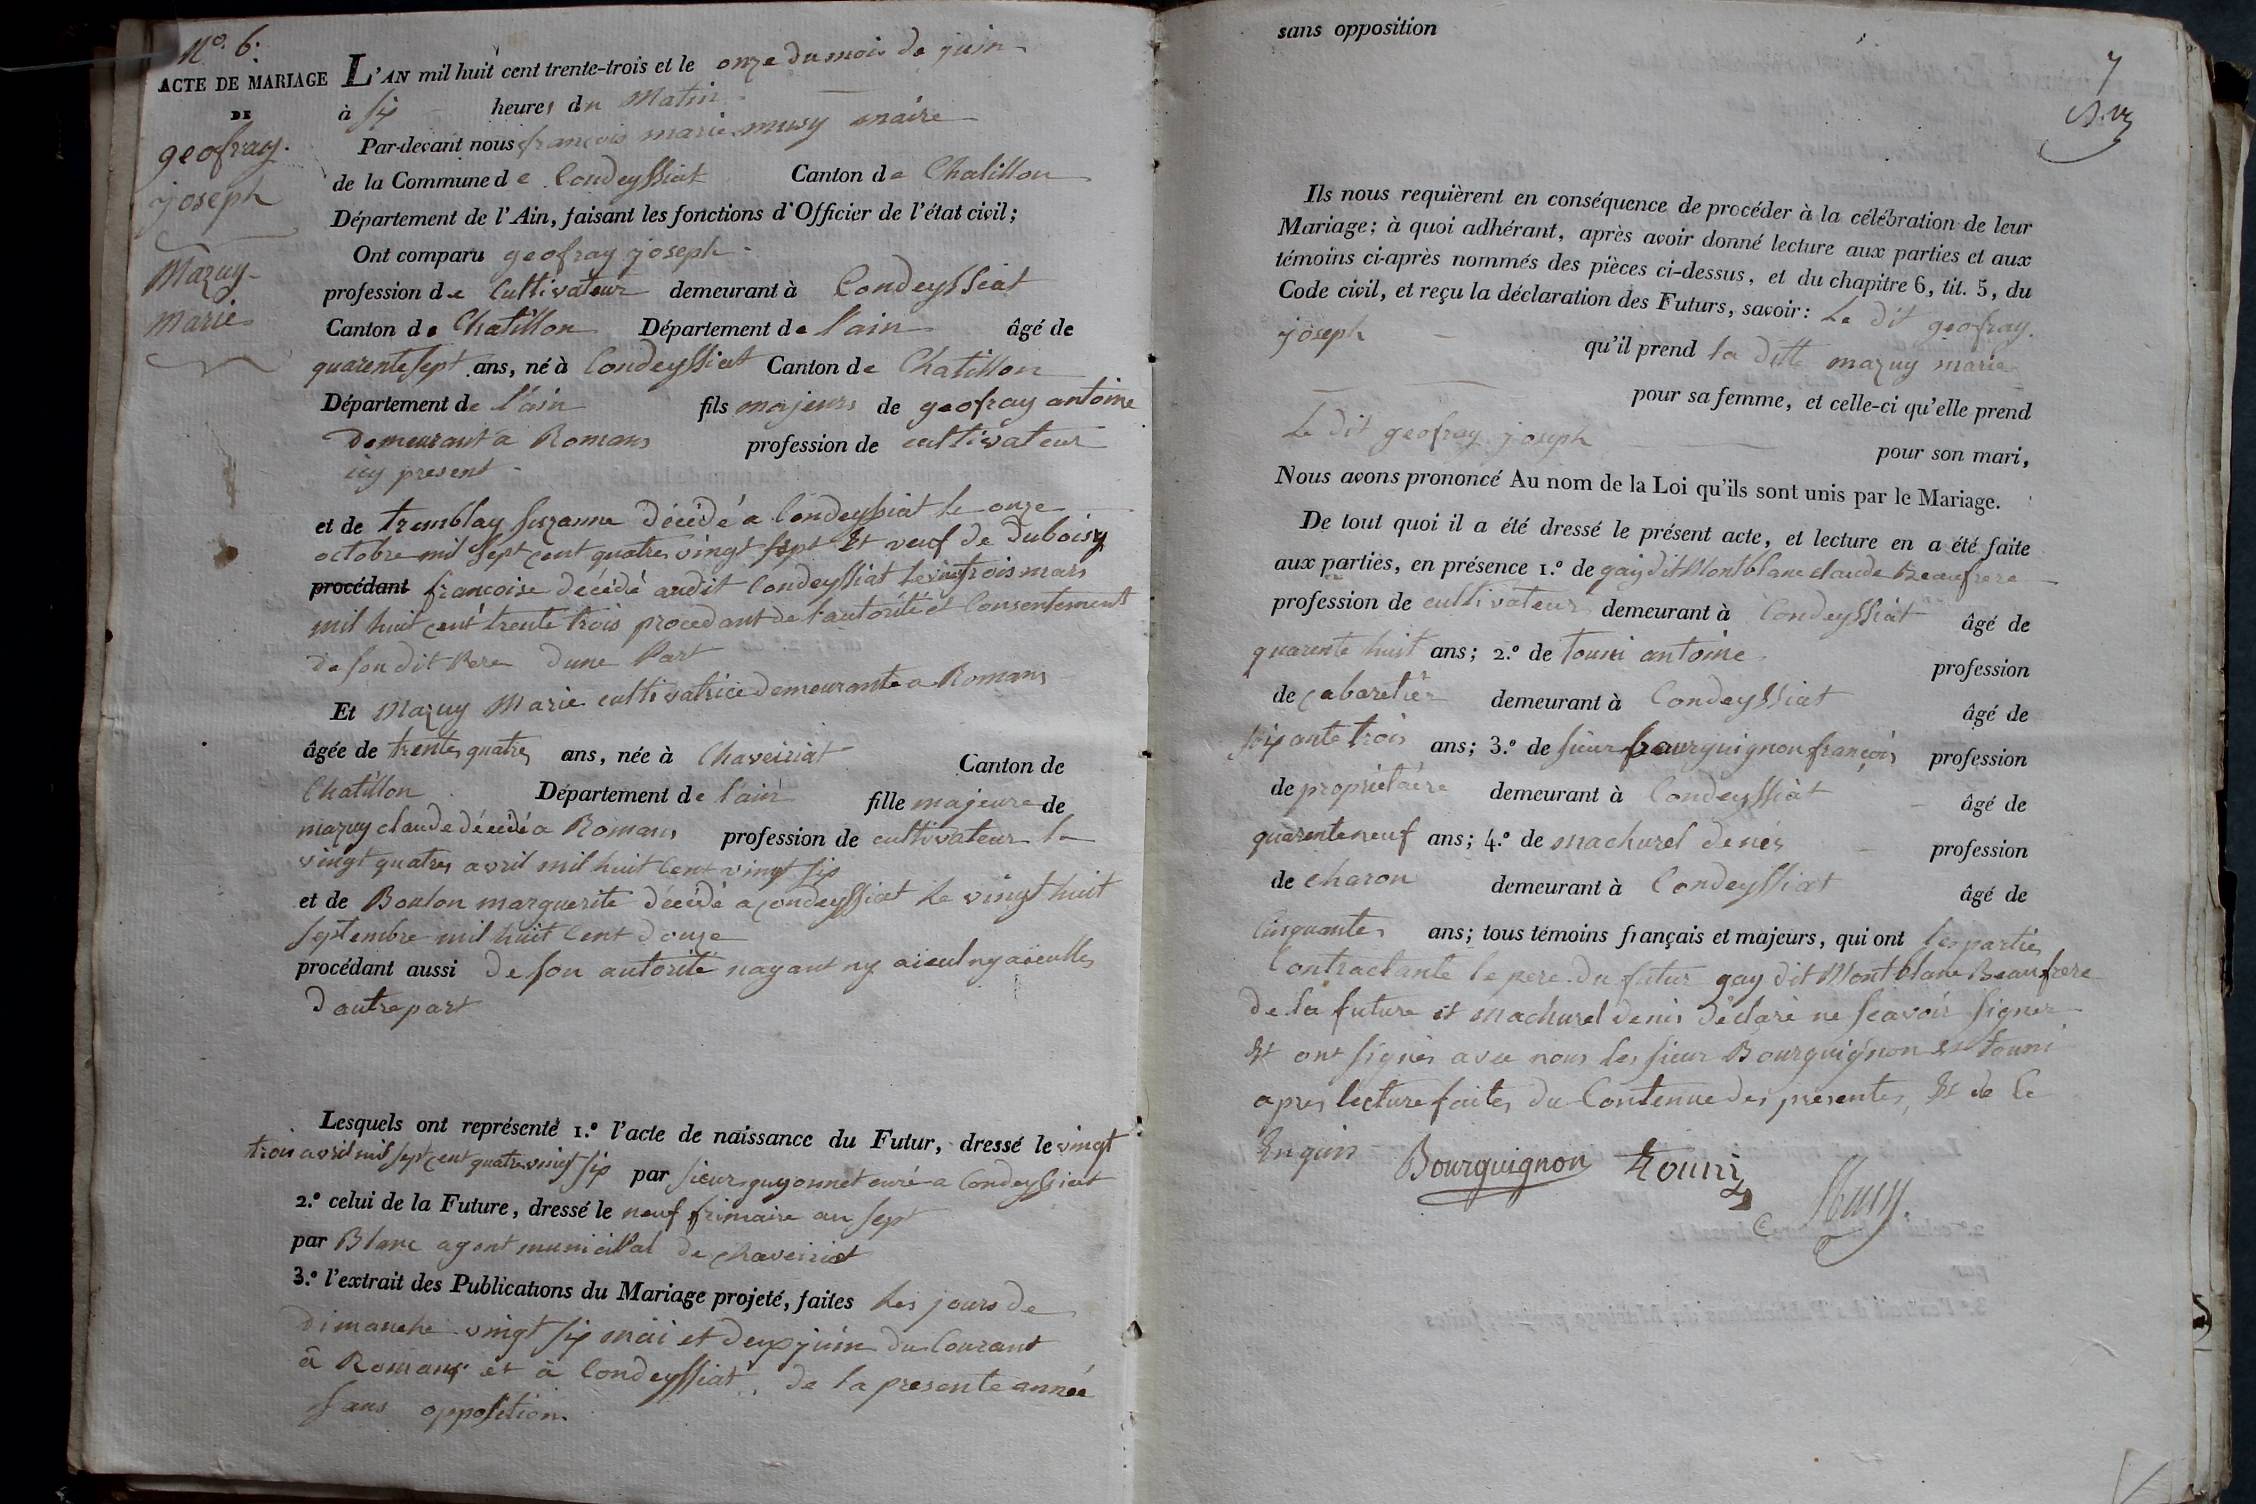 N.o 6.
ACTE DE MARIAGE
DE
geofray.
joseph
Mazuy
Marie
L'AN mil huit cent trente-trois et le onze du mois de juin
à six heures du Matin
Par-devant nous françois marie musy maire
de la Commune de Condeyssiat Canton de Chatillon
Département de l'Ain, faisant les fonctions d'Officier de l'état civil;
Ont comparu geofray joseph
profession de Cultivateur demeurant à Condeyssiat
Canton de Chatillon Département de l'ain âgé de
quarente sept ans, né à Condeyssiat Canton de Chatillon
Département de l'ain fils majeurs de geofray antoine
demeurant a Romans profession de cultivateur
icy present
et de tremblay suzanne décédé a Condeyssiat le onze
octobre mil sept cent quatre vingt sept Et veuf de Duboisy
procédant francoise décédé audit Condeyssiat le vingt trois mars
mil huit cent trente trois procedant de l'autorité et Consentement
de son dit Pere d'une Part
Et Mazuy Marie cultivatrice demeurante a Romans
âgée de trente quatre ans, née à Chaveiriat Canton de
Chatillon Département de l'ain fille majeure de
mazuy claude décédé a Romans profession de cultivateur le
vingt quatre avril mil huit Cent vingt six
et de Boulon marguerite décédé a Condeyssiat le vingt huit
septembre mil huit Cent douze
procédant aussi de son autorité nayant ny aieul ny aieulles
d'autre part
Lesquels ont représenté 1.o l'acte de naissance du Futur, dressé le vingt
trois avril mil sept cent quatre vingt six par sieur guyonnet curé a Condeyssiat
2.o celui de la Future, dressé le neuf frimaire an sept
par Blanc agent municipal de chaveiriat
3.o l'extrait des Publications du Mariage projeté, faites les jours de
dimanche vingt six mai et deux juin du Courant
à Romans et à Condeyssiat, de la presente année
sans opposition.
sans opposition
7
Ils nous requièrent en conséquence de procéder à la célébration de leur
Mariage; à quoi adhérant, après avoir donné lecture aux parties et aux
témoins ci-après nommés des pièces ci-dessus, et du chapitre 6, tit. 5, du
Code civil, et reçu la déclaration des Futurs, savoir: Le dit geofray.
joseph qu'il prend la ditte mazuy marie
pour sa femme, et celle-ci qu'elle prend
Le dit geofray joseph pour son mari,
Nous avons prononcé Au nom de la Loi qu'ils sont unis par le Mariage.
De tout quoi il a été dressé le présent acte, et lecture en a été faite
aux parties, en présence 1.o de gay dit Montblanc claude Beaufrere
profession de cultivateur demeurant à Condeyssiat âgé de
quarente huit ans; 2.o de touni antoine profession
de cabaretier demeurant à Condeyssiat âgé de
soixante trois ans; 3.o de sieur bourguignon françois profession
de propriétaire demeurant à Condeyssiat âgé de
quarente neuf ans; 4.o de machurel denis profession
de charon demeurant à Condeyssiat âgé de
Cinquante ans; tous témoins français et majeurs, qui ont les partie
Contractante le pere du futur gay dit Montblanc Beaufrere
de la future et machurel denis déclaré ne scavoir signer
Et ont signés avec nous les sieur Bourguignon et touni
apres lecture faites du Contenue des presentes, Et de Ce
Enquis
Bourguignon touni Musy